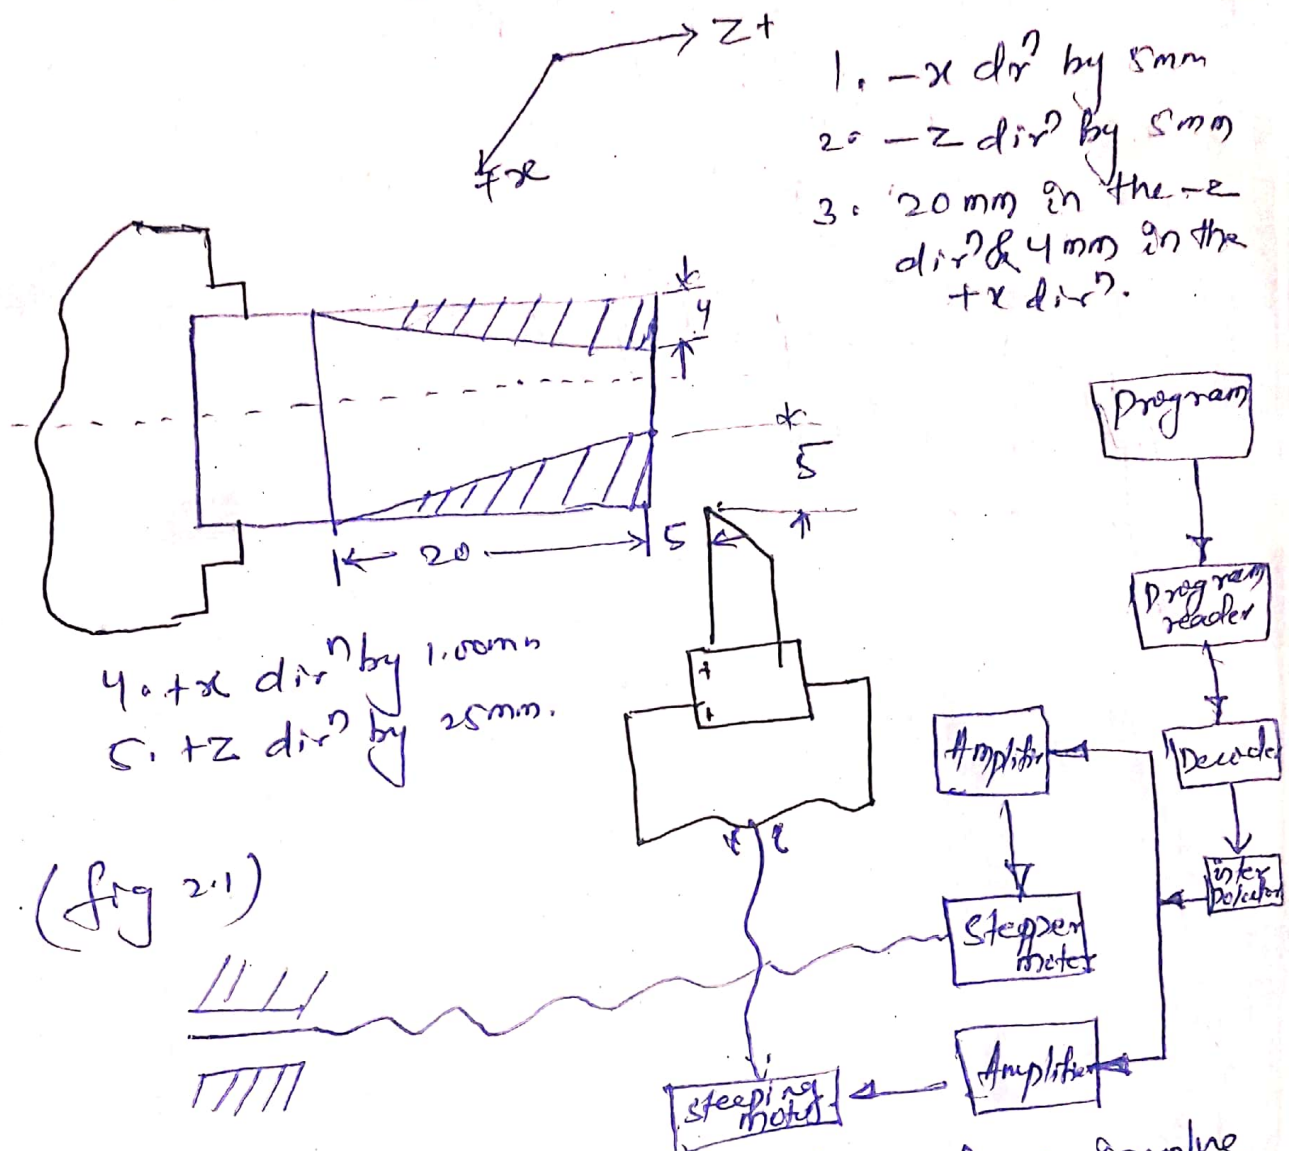 Z+
+x
1. -x dirⁿ by 5mm
2. -z dirⁿ by 5mm
3. 20mm in the -z
dirⁿ & 4mm in the
+x dirⁿ.
4
5
20
5
4. +x dirⁿ by 1.00mm
5. +z dirⁿ by 25mm.
(fig 2.1)
Program
Program
reader
Decoder
inter
polator
Amplifier
Stepper
motor
Amplifier
steeping
motor